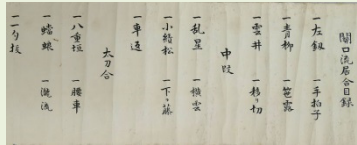 関口流居合目録
一左釼 一手拍子
一青柳 一笹露
一雲井 一移り切
中段
一乱星 一横雲
一小緒松 一下り藤
一車返
太刀合
一八重垣 一腰車
一蟠蜋 一瀧流
一勾投